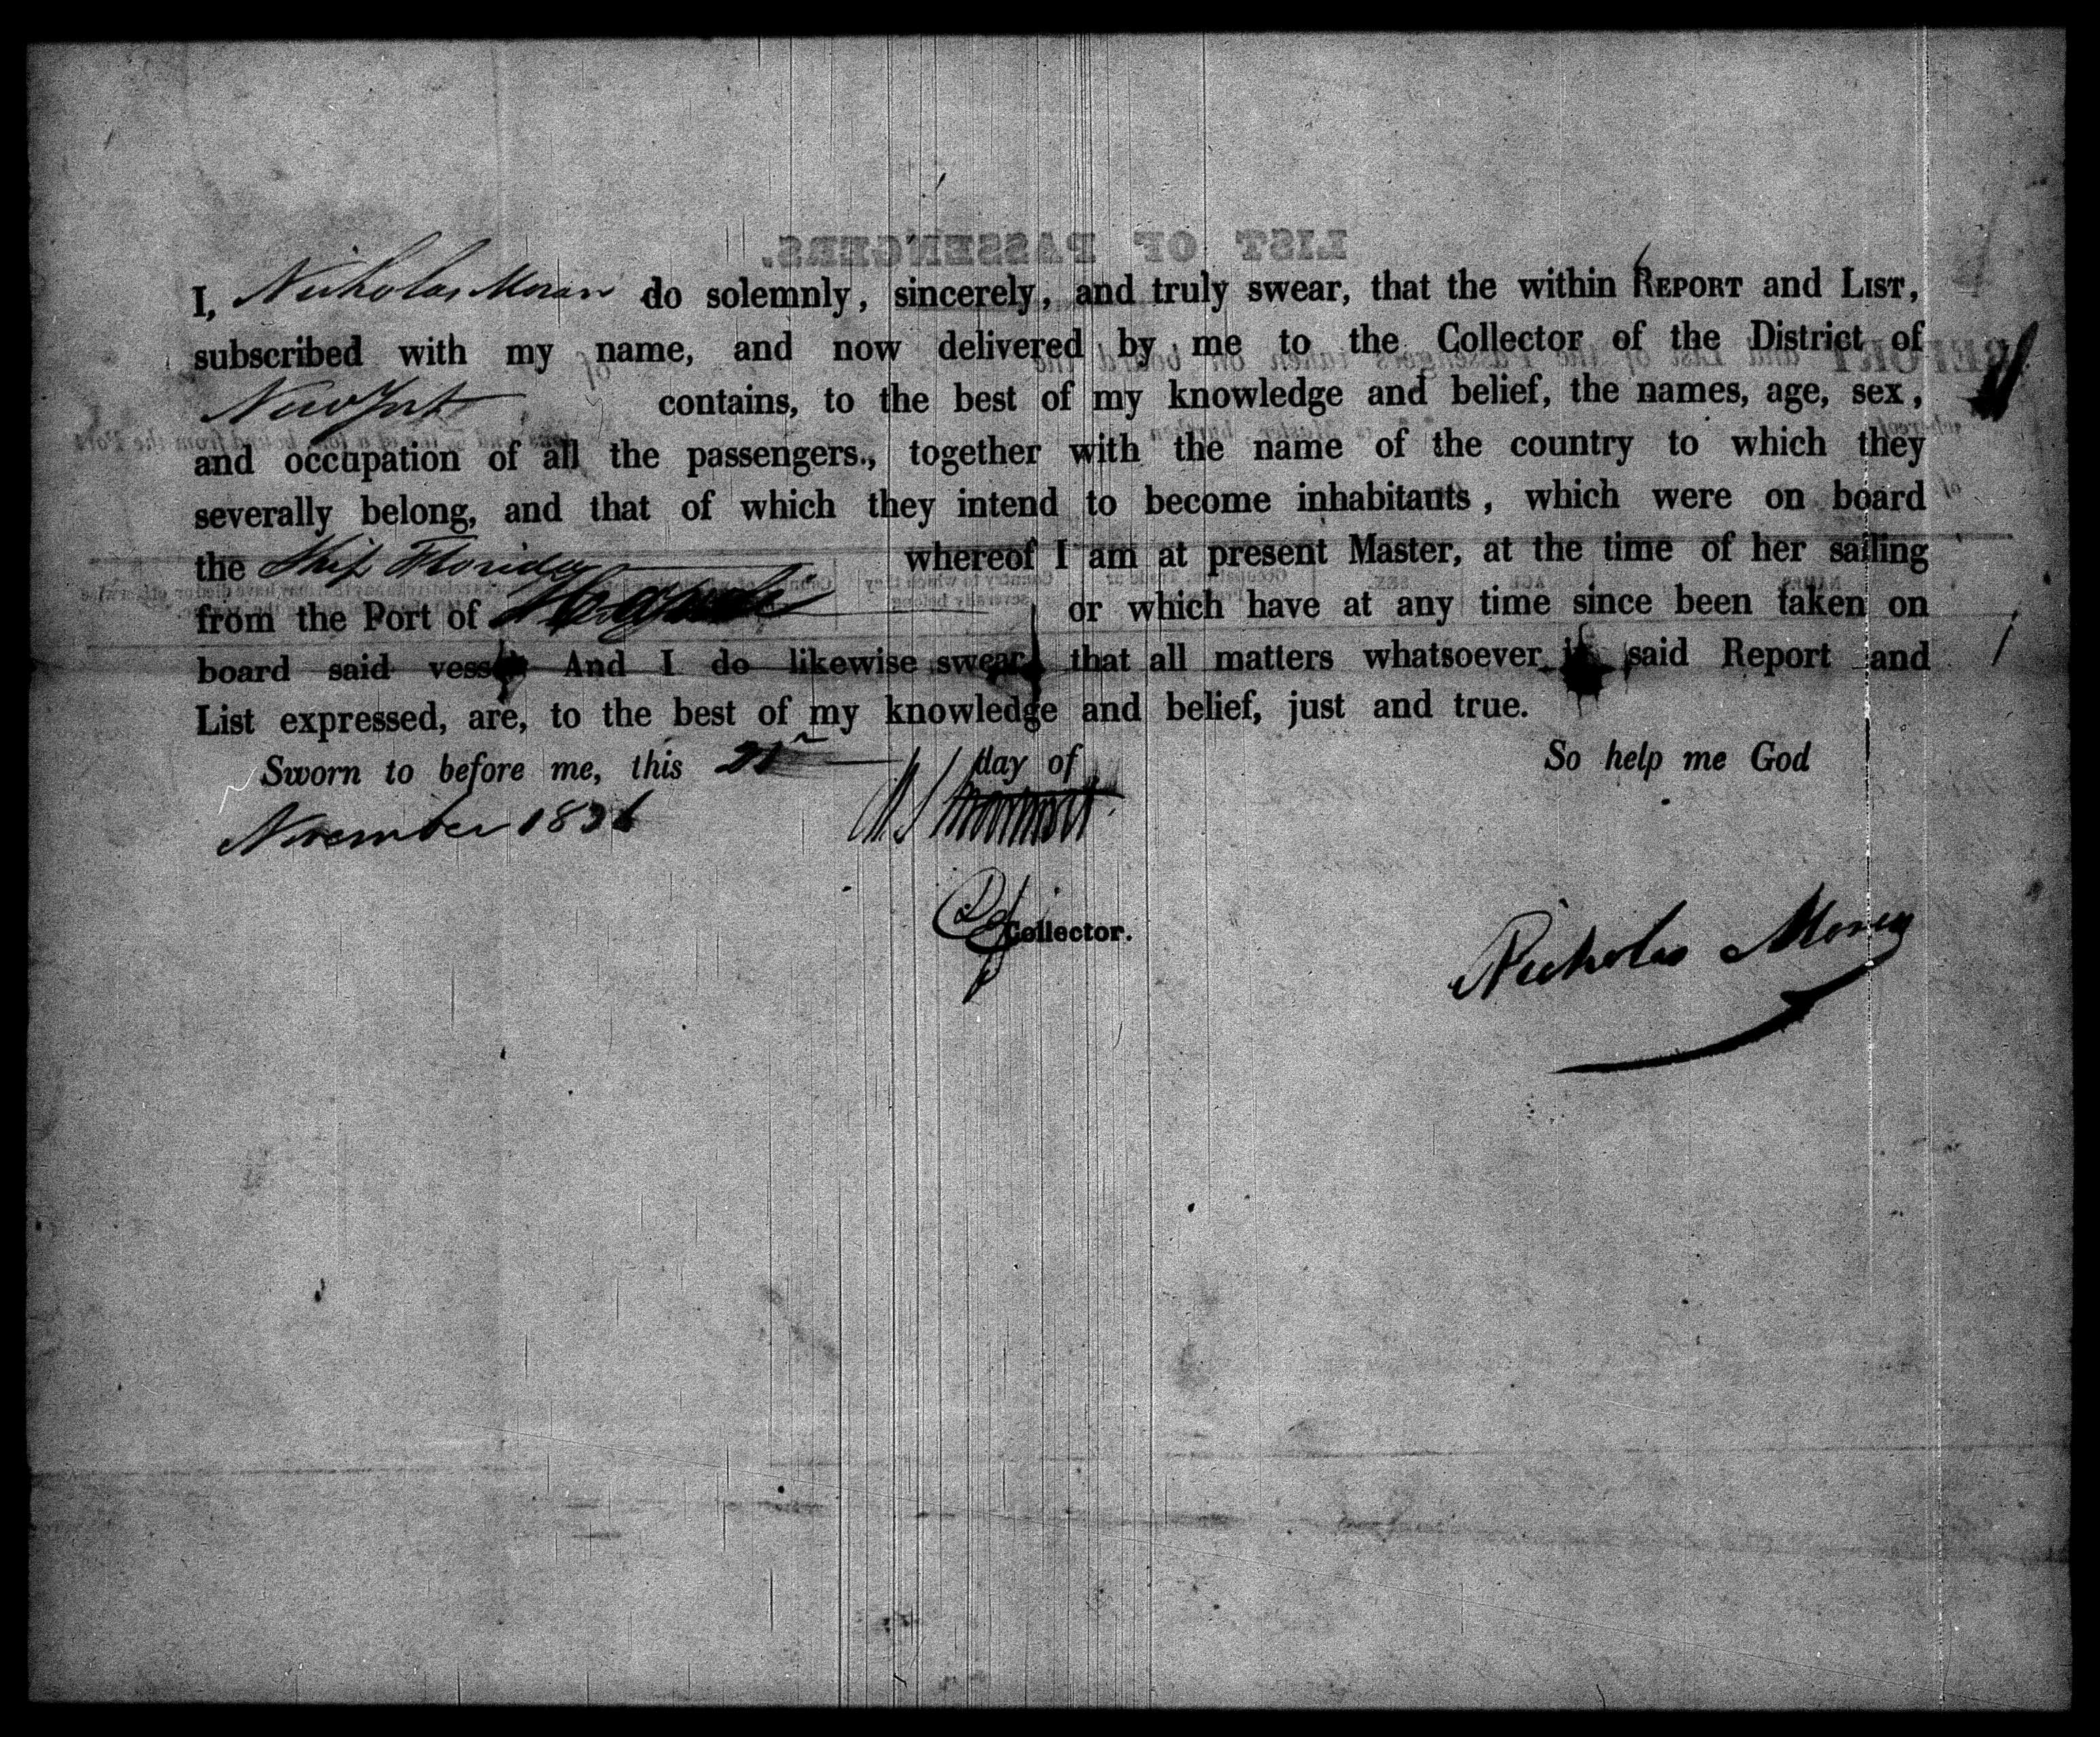 LIST OF PASSENGERS.
I, Nicholas Moran do solemnly, sincerely, and truly swear, that the within REPORT and LIST,
subscribed with my name, and now delivered by me to the Collector of the District of
New York contains, to the best of my knowledge and belief, the names, age, sex,
and occupation of all the passengers., together with the name of the country to which they
severally belong, and that of which they intend to become inhabitants, which were on board
the Ship Florida whereof I am at present Master, at the time of her sailing
from the Port of or which have at any time since been taken on
board said vessel And I do likewise swear, that all matters whatsoever in said Report and
List expressed, are, to the best of my knowledge and belief, just and true.
Sworn to before me, this day of So help me God
November 1836
Collector.
Nicholas Moran